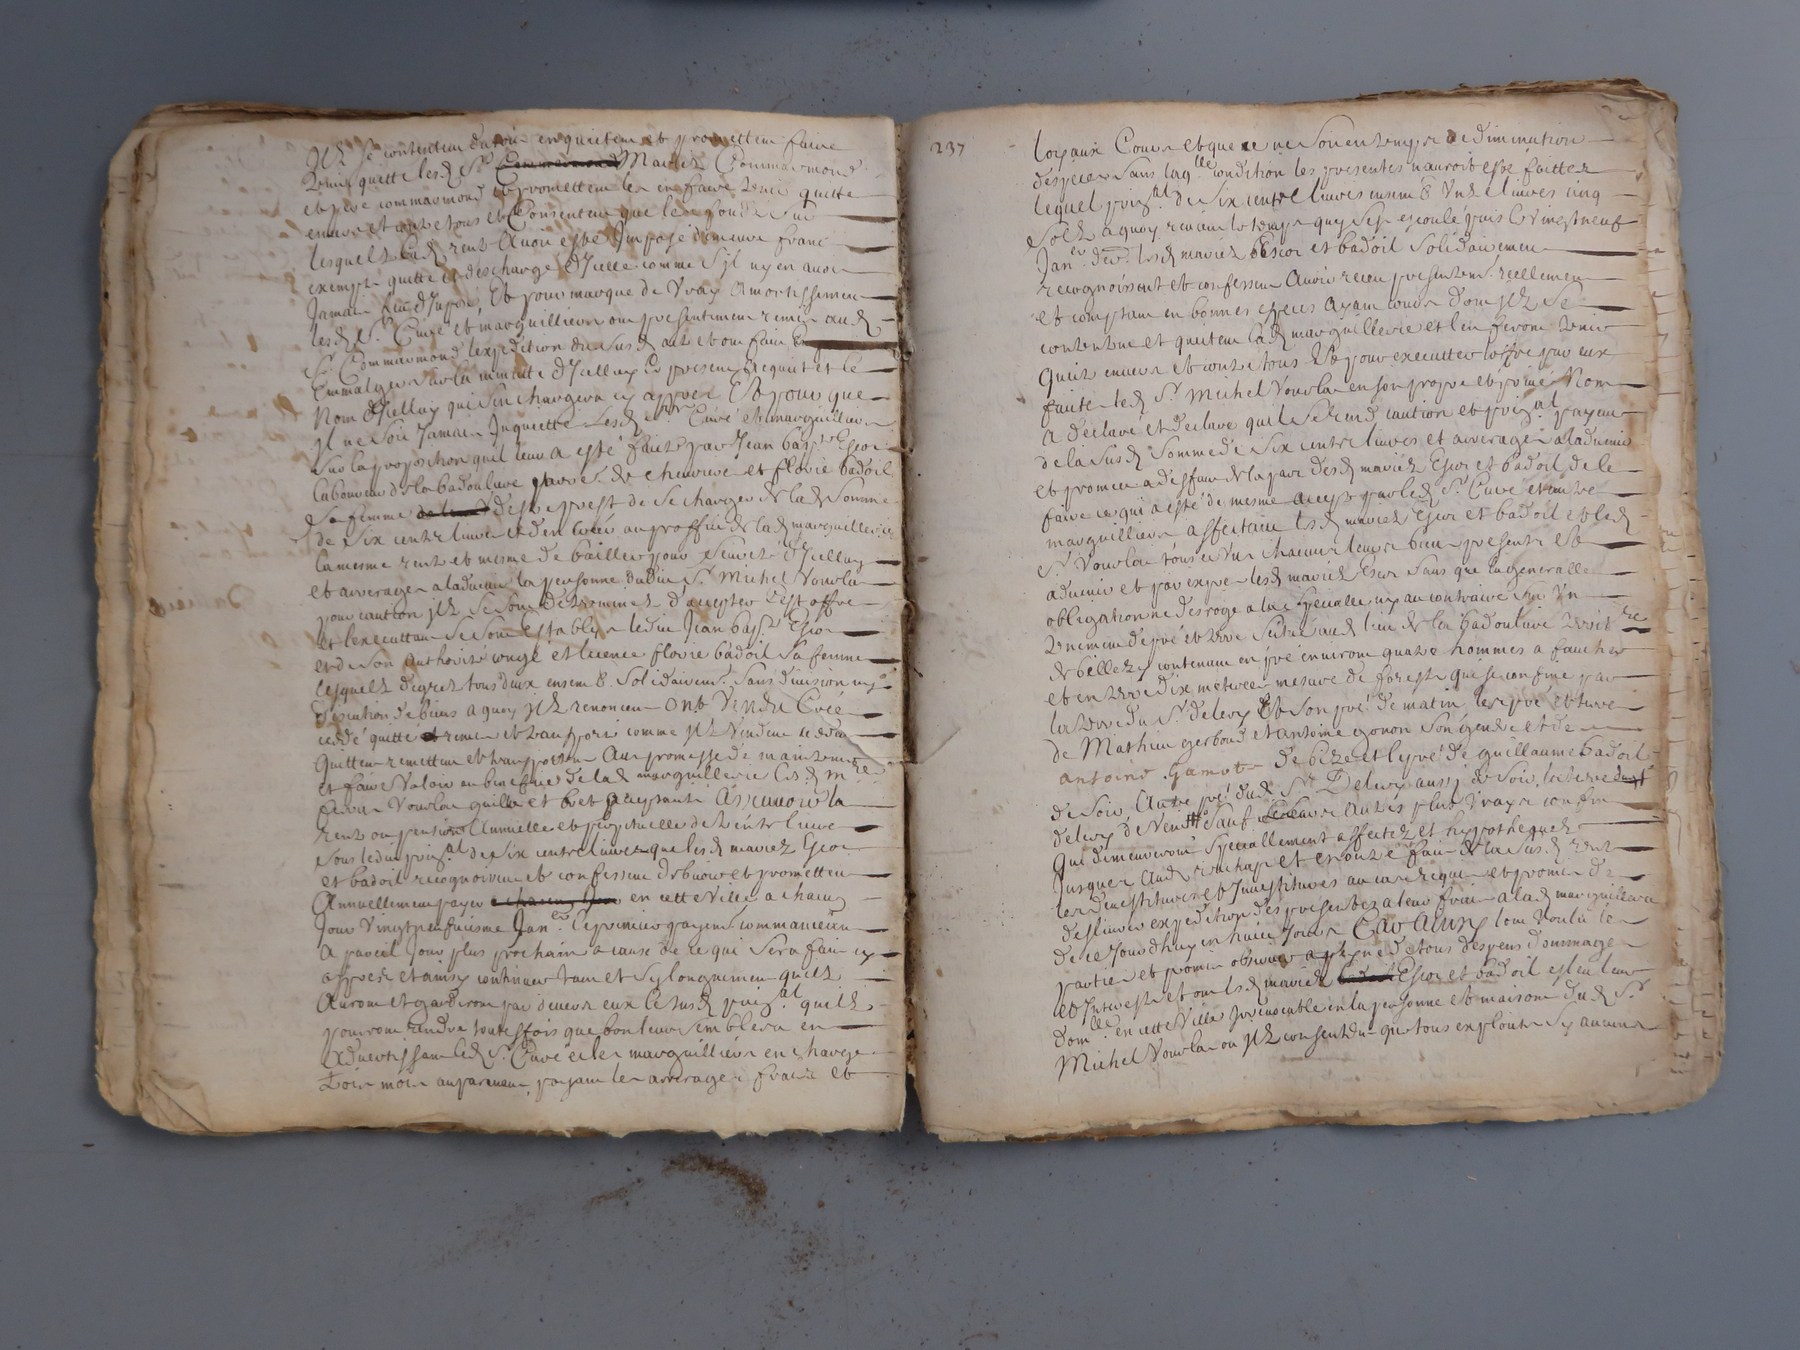 Ilz se contentent enquittent et promettent faire
tenir quitte lesd Sr Commarmond
et pere commarmond et promettent les en faire tenir quitte
envers et contre tous et Consentent que le fond sur
lesquels lad rente avoit esté Imposé demeure franc
exempt quitte et deschargé d'Icelle comme s'il n'y en avoit
Jamais heu d'Imposé, Et pour marque de vray amortissement
lesd Srs Curé et marguilliers ont presentement remis aud
Sr Commarmond l'expedition du susd acte et ont fait
Emmarger sur la minutte d'Icelluy
Nom d'Icelluy qui s'en chargera cy appres Et pour que
Il ne soit Jamais Inquietté lesd Srs Curé et marguilliers
sur la proposition qui leur a esté faite par Jean bapte Escot
laboureur de la badouliere parr. de chevriere et florie badoil
sa femme d'estre prest de se charger de lad somme
de six cents livres et d'en au proffit de lad marguillerie
la mesme rente et mesme de bailler pour seureté d'Icelluy
et arrerages a ladvenir la personne dudit Sr Michel Vourlat
pour caution Ilz se sont determinez d'accepter cest offre
et l'executtant se sont Establys ledit Jean bapt Escot
et de son authorité congé et licence florie badoil sa femme
lesquels de gré tous deux ensemb. solidairement sans division ny
discution de biens a quoy Ilz renoncent ont Vendu Créé
ceddé quitté remis et transporté comme Ilz Vendent ceddent
quittent remettent et transportent Avec promesse de maintenir
et faire Valoir au benefice de lad marguillerie lesd
Vourlat et acceptants Assavoir la
rente ou pension Annuelle et perpetuelle de trente livres
sous ledit prinal de six cents livres que lesd mariez Escot
et badoil recognoissent et confessent debvoir et promettent
Annuellement payer en cette Ville a chacun
Jour Vingt neufiesme Janer le premier payemt commancera
a pareil Jour plus prochain a cause de ce qui sera fait cy
appres et ainsy continuer tant et sy longuement quilz
Auront et garderont par devers eux le susd prinal quilz
pourront rendre touteffois que bon leur semblera en
Advertissant led Sr Curé et les marguilliers en charge
trois mois auparavant, payant les arrerages fraix et
237
loyaux Cousts et que ce ne soit en temps de diminution
d'especes sans laqlle condition les presentes n'auroit esté faittes
lequel prinal de six cents livres ensemb Vnze livres cinq
solz a quoy revient le temps qui s'est escoulé puis le vingt neuf
Janer der lesd mariez Escot et badoil solidairement
recognoissent et confessent Avoir receu presentemt reellement
et comptant en bonnes especes Ayant cours dont Ilz se
contentent et quittent lad marguillerie et l'en feront tenir
quitte envers et contre tous Et pour executter l'offre par eux
faite led Sr Michel Vourlat en son propre et privé Nom
A declaré et declare quil se rend caution et prinal payeur
de la susd somme de six cents livres et arrerages a ladvenir
et promet a deffaut de la part desd mariez Escot et badoil de le
faire ce qui a esté de mesme accepté par led Sr Curé et autre
marguilliers affectant lesd mariez Escot et badoil et led
Sr Vourlat tous et Vn chacun leurs biens presents et
advenir et par exprès lesd mariez Escot sans que la generalle
obligation ne desroge a la specialle ny au contraire sur Vn
tenement de pré et terre scitué aud lieu de la badouliere
contenant en pré environ quatre hommes a faucher
et en terre dix metterées mesure de forest qui se confine par
la terre du Sr delery Et son pré de matin les pré et terre
de Mathieu gerboud et antoine gonon son gendre et de
antoine Gamot de bize et le pré de guillaume badoil
de soir, Autre pré dud Sr Delery aussy de soir, la terre
delery de Vent Sauf autres plus Vrays confins
qui demeureront specialement affectez et hypothequez
Jusques aud rachapt et en outre fait de la susd rente
les devestitures et Investitures au cas requis et promet de
deslivrer expedition des presentes a leurs fraix a lad marguillerie
de ce Jourdhuy en huict Jours Car Ainsy l'ont Voulu les
parties et promis observer a peyne de tous despens dommages
et Interests et ont lesd mariez Escot et badoil esleu leur
domlle en cette Ville Irrevocable en la personne et maison dud Sr
Michel Vourlat ou Ilz consentent que tous exploits sy aucuns